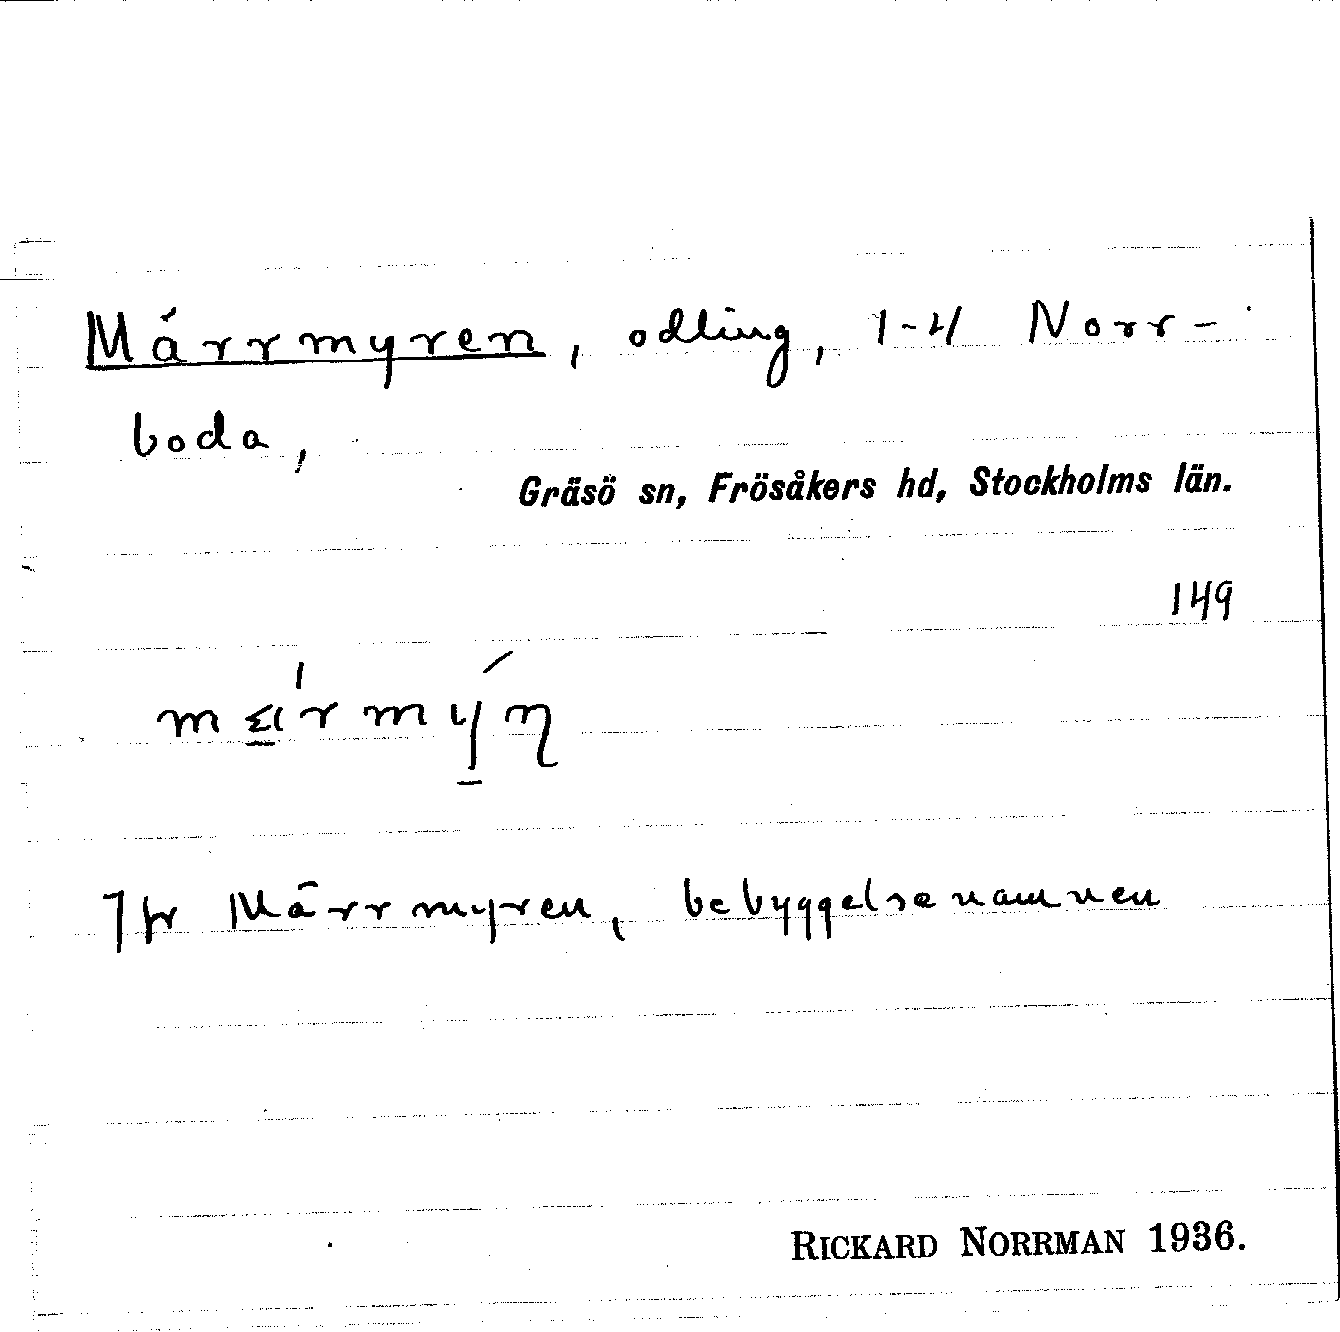 Märrmyren, odling, 1-4 Norr-
boda,
Gräsö sn, Frösåkers hd, Stockholms län.
149
Jfr Märrmyren, bebyggelsenamnen
RICKARD NORRMAN 1936.